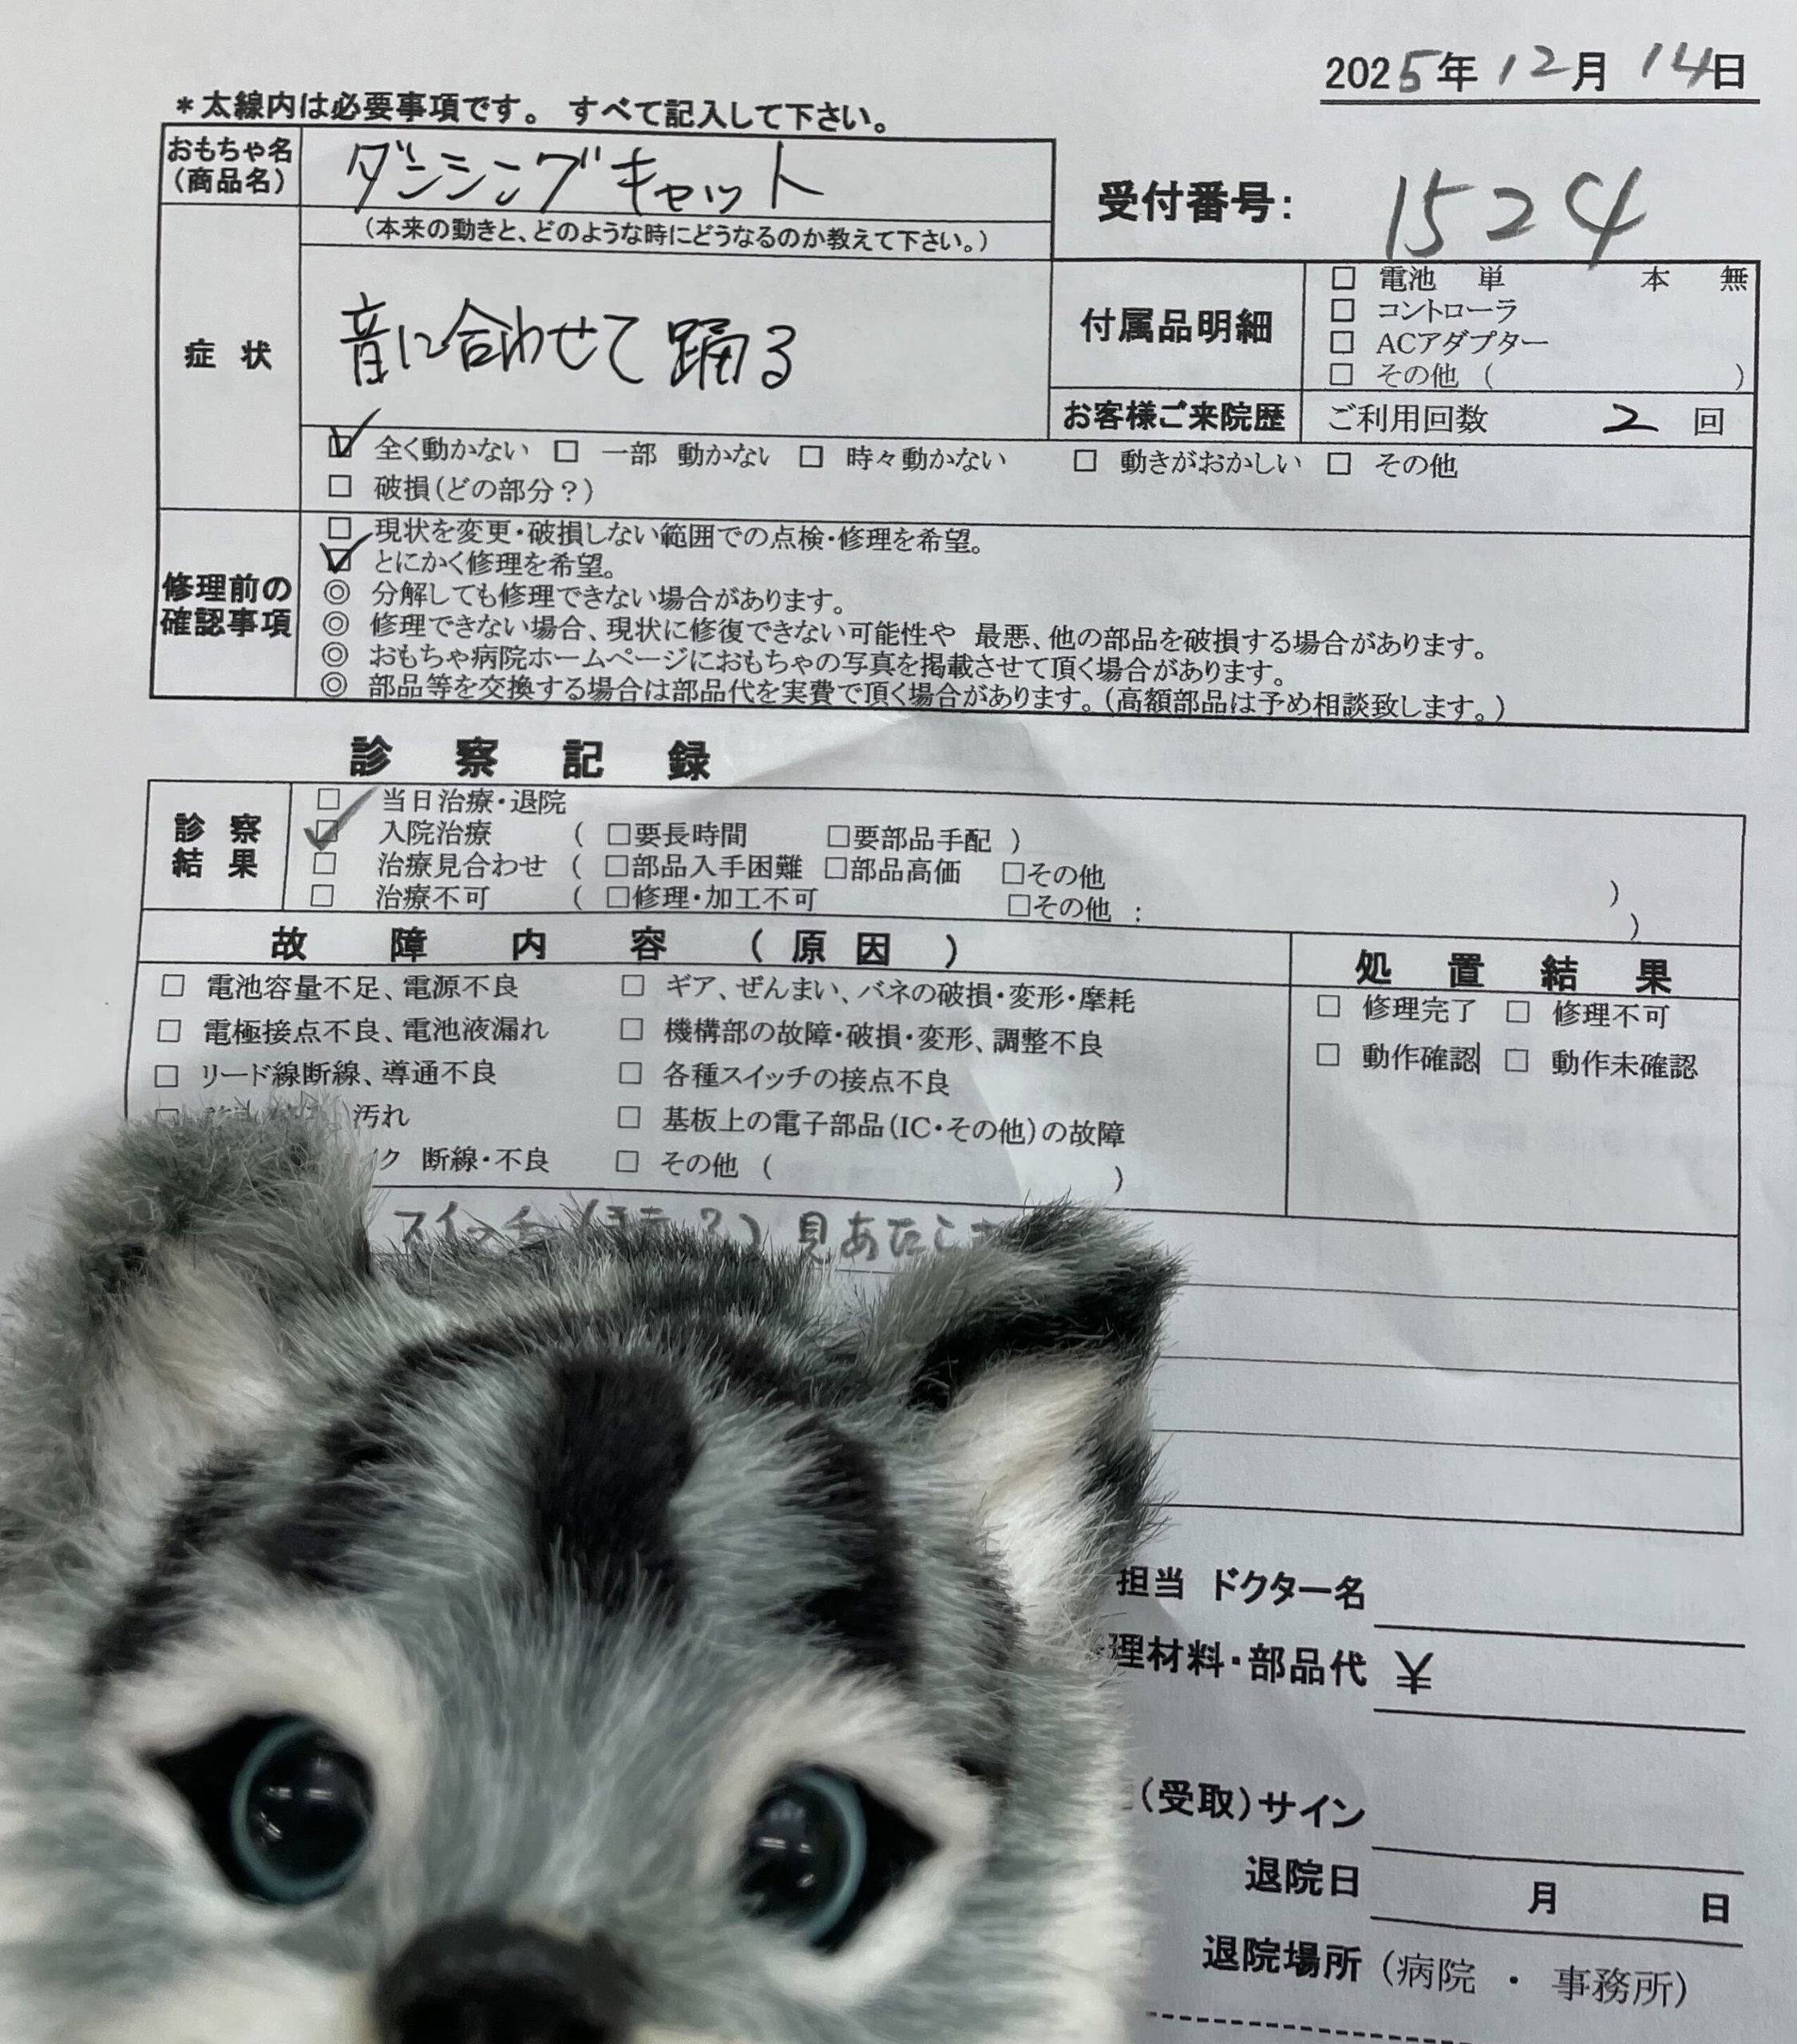 2025年 12月 14日
＊太線内は必要事項です。 すべて記入して下さい。
おもちゃ名
(商品名)
ダンシングキャット
受付番号： 1524
(本来の動きと、どのような時にどうなるのか教えて下さい。)
症 状
音に合わせて踊る
付属品明細
□ 電池 単 本 無
□ コントローラ
□ ACアダプター
□ その他 ( )
お客様ご来院歴 ご利用回数 2 回
☑ 全く動かない □ 一部 動かない □ 時々動かない □ 動きがおかしい □ その他
□ 破損(どの部分？)
修理前の
確認事項
□ 現状を変更・破損しない範囲での点検・修理を希望。
☑ とにかく修理を希望。
◎ 分解しても修理できない場合があります。
◎ 修理できない場合、現状に修復できない可能性や 最悪、他の部品を破損する場合があります。
◎ おもちゃ病院ホームページにおもちゃの写真を掲載させて頂く場合があります。
◎ 部品等を交換する場合は部品代を実費で頂く場合があります。(高額部品は予め相談致します。)
診 察 記 録
診 察
結 果
□ 当日治療・退院
☑ 入院治療 ( □要長時間 □要部品手配 )
□ 治療見合わせ ( □部品入手困難 □部品高価 □その他 )
□ 治療不可 ( □修理・加工不可 □その他 : )
故 障 内 容 ( 原 因 )
処 置 結 果
□ 電池容量不足、電源不良 □ ギア、ぜんまい、バネの破損・変形・摩耗
□ 修理完了 □ 修理不可
□ 電極接点不良、電池液漏れ □ 機構部の故障・破損・変形、調整不良
□ 動作確認 □ 動作未確認
□ リード線断線、導通不良 □ 各種スイッチの接点不良
汚れ □ 基板上の電子部品(IC・その他)の故障
イク 断線・不良 □ その他 ( )
スイッチ 見あたら
担当 ドクター名
理材料・部品代 ￥
(受取)サイン
退院日 月 日
退院場所 (病院 ・ 事務所)